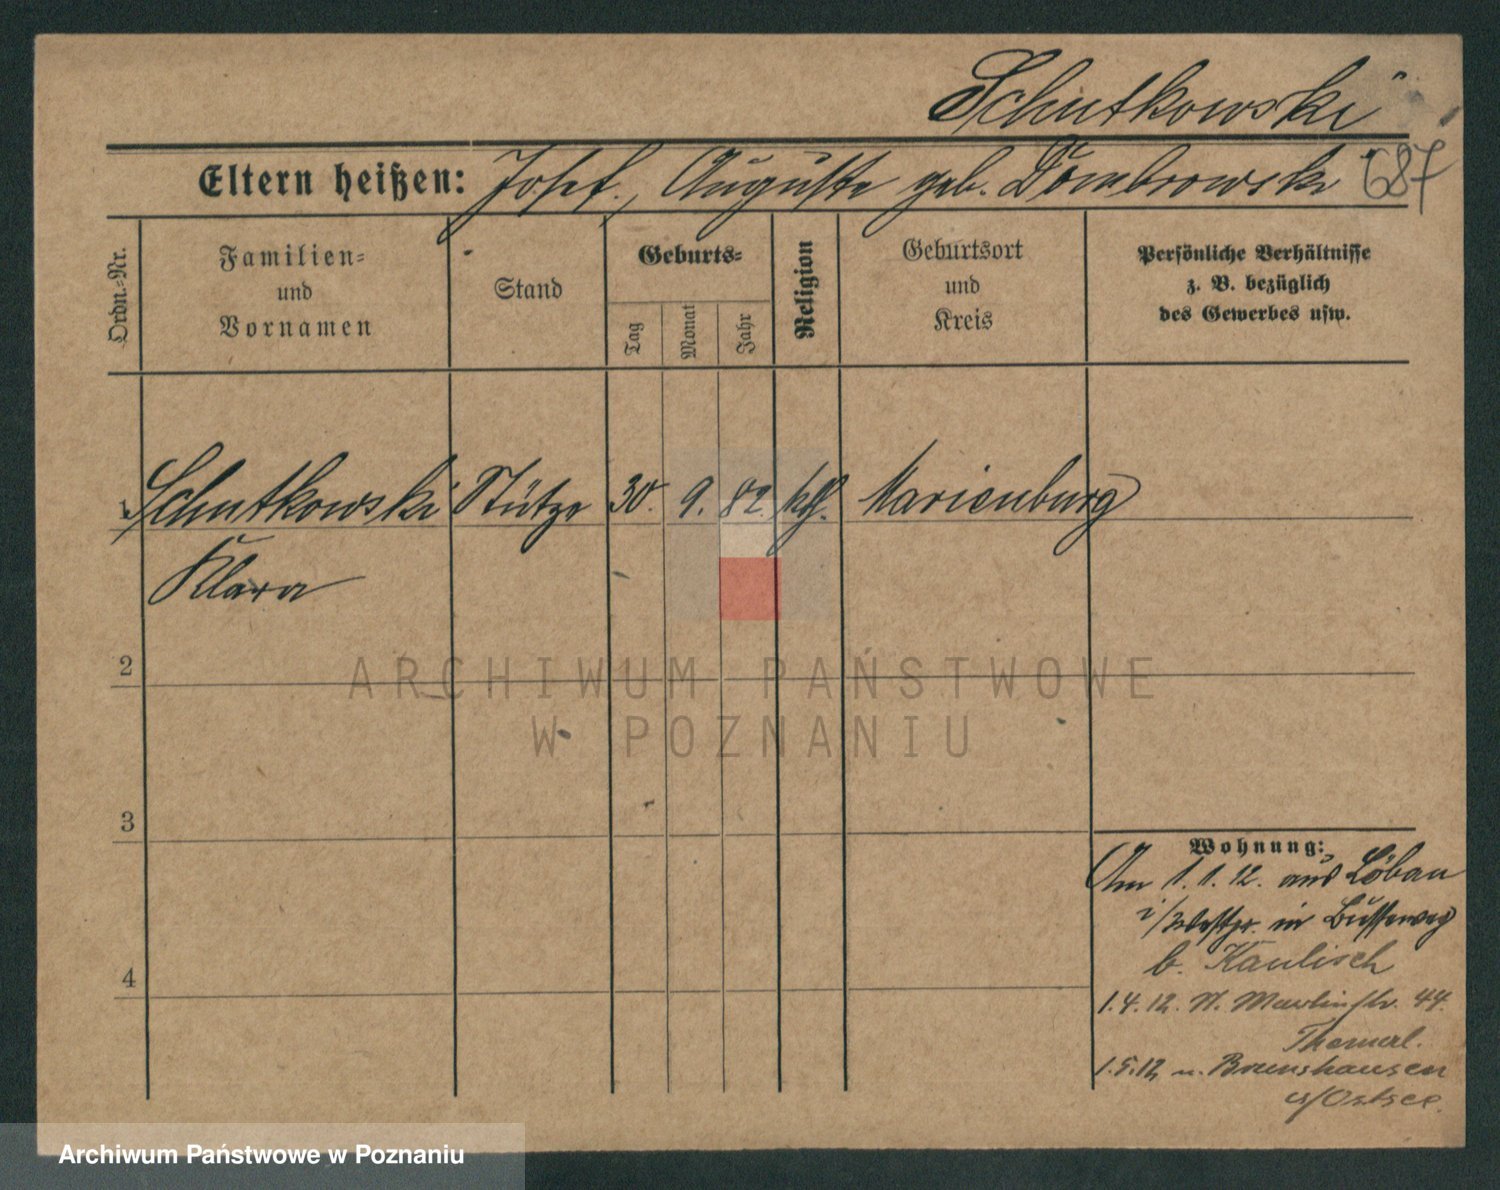 Schutkowski
Eltern heißen: Josef, Auguste geb. Dombrowski 687
Ordn.=Nr.
Familien=
und
Vornamen
Stand
Geburts=
Tag
Monat
Jahr
Religion
Geburtsort
und
Kreis
Persönliche Verhältnisse
z. B. bezüglich
des Gewerbes usw.
1 Schutkowski Stütze 30. 9. 82. kth. Marienburg
Klara
2
3
4
ARCHIWUM PAŃSTWOWE
W POZNANIU
Wohnung:
Am 1.1.12. aus Löbau
i/Westpr. in Busseweg
b. Kaulisch
1.4.12. N. Martinstr. 44.
1.5.12 n. Brunshausen
a/Ostsee.
Archiwum Państwowe w Poznaniu